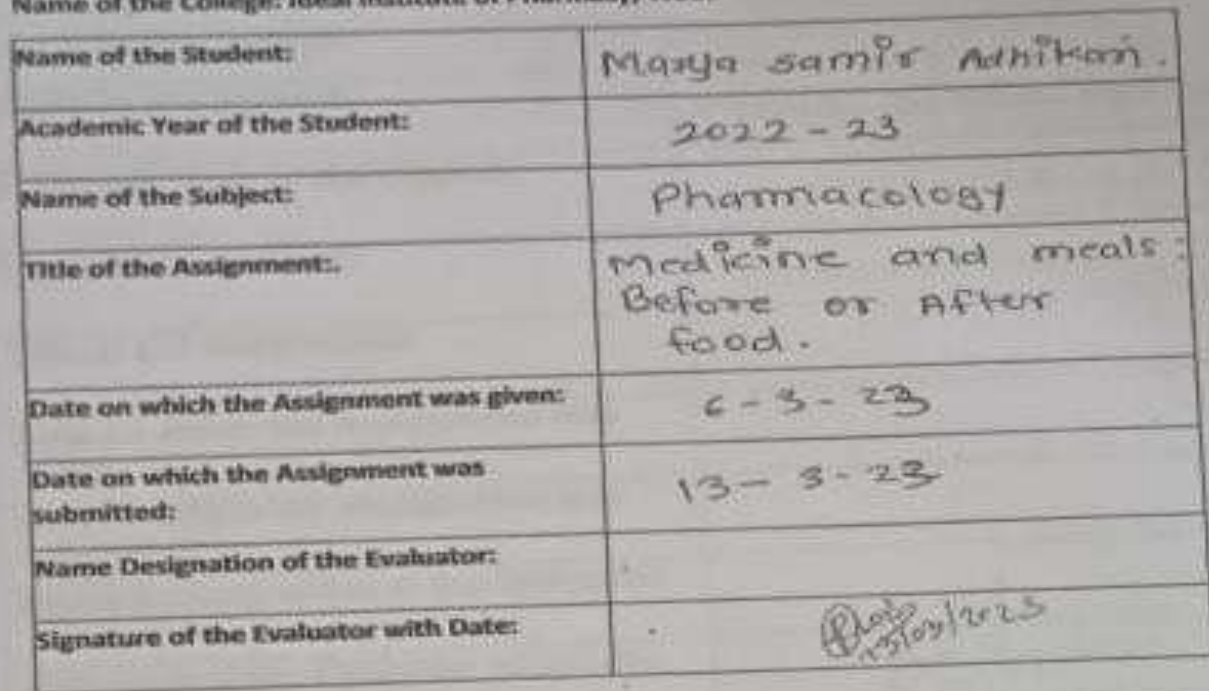 Name of the College: Ideal Institute of Pharmacy,
Name of the Student: Marya samir Adhikari.
Academic Year of the Student: 2022 - 23
Name of the Subject: Pharmacology
Title of the Assignment:. Medicine and meals:
Before or After
food.
Date on which the Assignment was given: 6 - 3 - 23
Date on which the Assignment was
submitted: 13 - 3 - 23
Name Designation of the Evaluator:
Signature of the Evaluator with Date: 13/03/2023